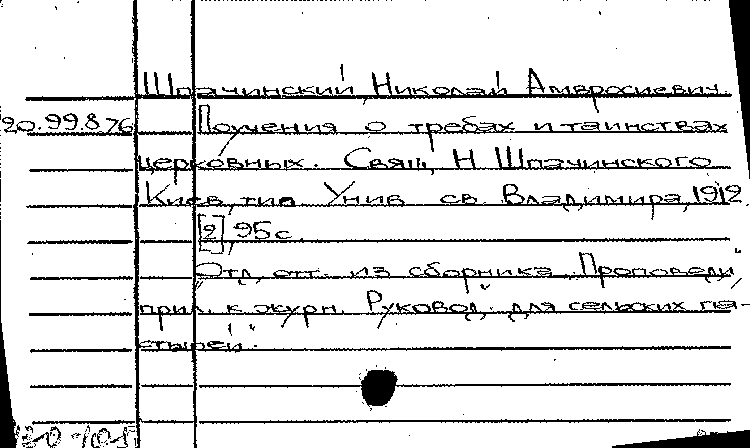 Шпачинский, Николай Амвросиевич.
20.99.8.76 Поучения о требах и таинствах
церковных. Свящ. Н. Шпачинского
Киев, тип. Унив. св. Владимира, 1912
[2], 95 с.
Отд. отт. из сборника „Проповеди“,
прил. к журн. „Руковод. для сельских па-
стырей“.